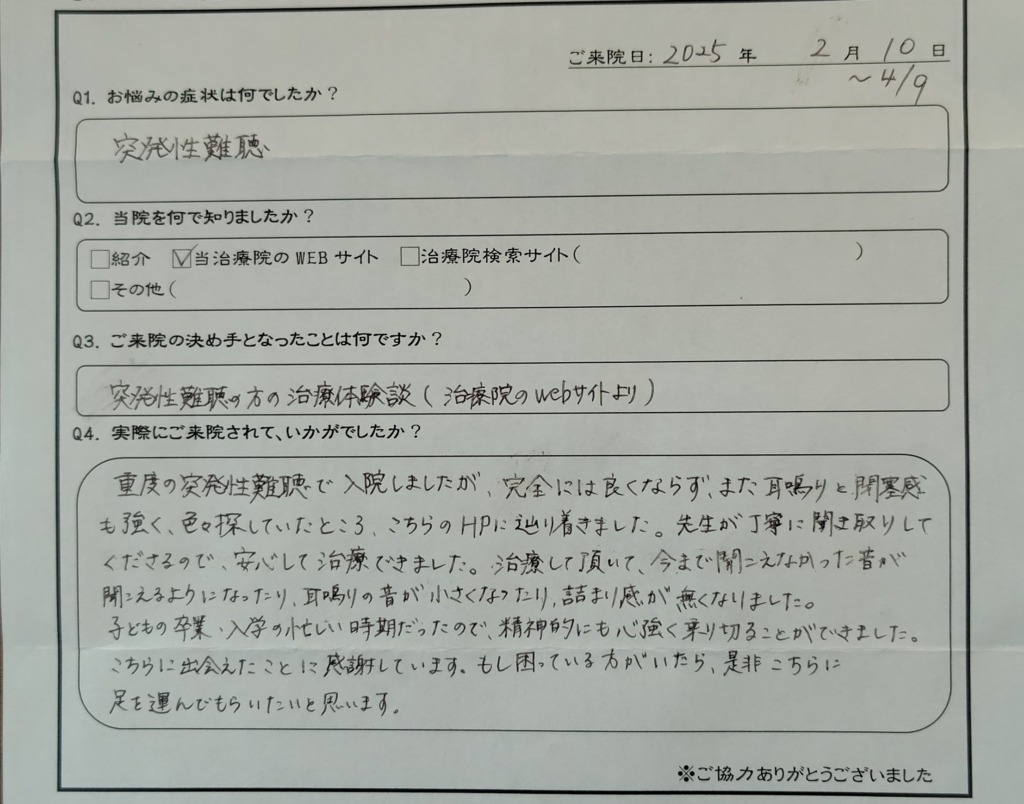 ご来院日: 2025 年 2 月 10 日
～4/9
Q1. お悩みの症状は何でしたか？
突発性難聴
Q2. 当院を何で知りましたか？
□紹介 ☑当治療院のWEBサイト □治療院検索サイト( )
□その他( )
Q3. ご来院の決め手となったことは何ですか？
突発性難聴の方の治療体験談(治療院のwebサイトより)
Q4. 実際にご来院されて、いかがでしたか？
重度の突発性難聴で入院しましたが、完全には良くならず、また耳鳴りと閉塞感
も強く、色々探していたところ、こちらのHPに辿り着きました。先生が丁寧に聞き取りして
くださるので、安心して治療できました。治療して頂いて、今まで聞こえなかった音が
聞こえるようになったり、耳鳴りの音が小さくなったり、詰まり感が無くなりました。
子どもの卒業・入学の忙しい時期だったので、精神的にも心強く乗り切ることができました。
こちらに出会えたことに感謝しています。もし困っている方がいたら、是非こちらに
足を運んでもらいたいと思います。
※ご協力ありがとうございました